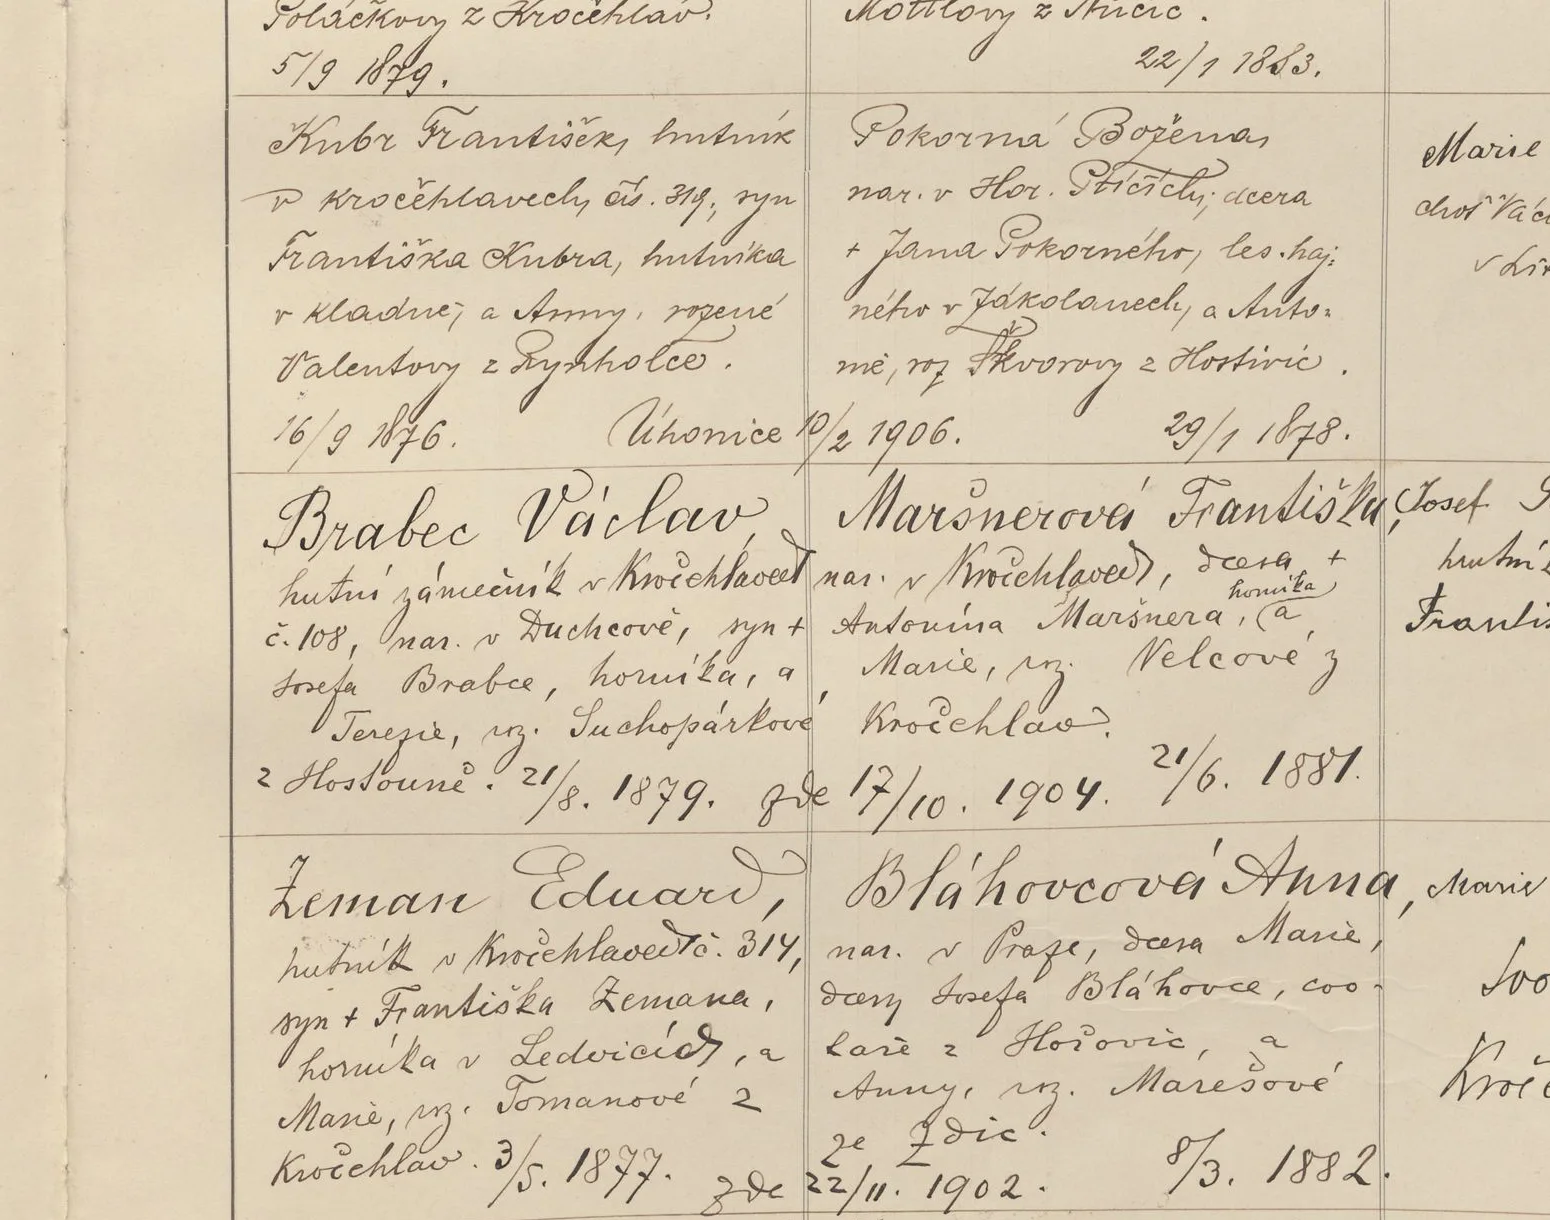 Poláčkovy z Kročehlav.
5/9 1879.
Mottlovy z Nučic.
22/1 1883.
Kubr František, hutník
v Kročehlavech, čís. 319, syn
Františka Kubra, hutníka
v Kladně, a Anny, rozené
Valentovy z Rynholce.
16/9 1876.
Úhonice 10/2 1906.
Pokorná Božena,
nar. v Hor. Ptíčích, dcera
+ Jana Pokorného, les. haj-
ného v Zákolanech, a Anto-
nie, roz Škvorovy z Hostivic.
29/1 1878.
Marie
choť Vác
v
Brabec Václav,
hutní zámečník v Kročehlavech
č. 108, nar. v Duchcově, syn +
Josefa Brabce, horníka, a
Terezie, roz. Suchopárkové
z Hostouně. 21/8. 1879.
zde 17/10. 1904.
Maršnerová Františka,
nar. v Kročehlavech, dcera +
horníka
Antonína Maršnera, a
Marie, roz. Velcové z
Kročehlav.
21/6. 1881.
Josef
hutní
Františ
Zeman Eduard,
hutník v Kročehlavech č. 314,
syn + Františka Zemana,
horníka v Ledvicích, a
Marie, roz. Tomanové z
Kročehlav. 3/5. 1877.
zde 22/11. 1902.
Bláhovcová Anna,
nar. v Praze, dcera Marie,
dcery Josefa Bláhovce, cvo-
kaře z Hořovic, a
Anny, roz. Marešové
ze Zdic.
8/3. 1882.
Marie
Kroč